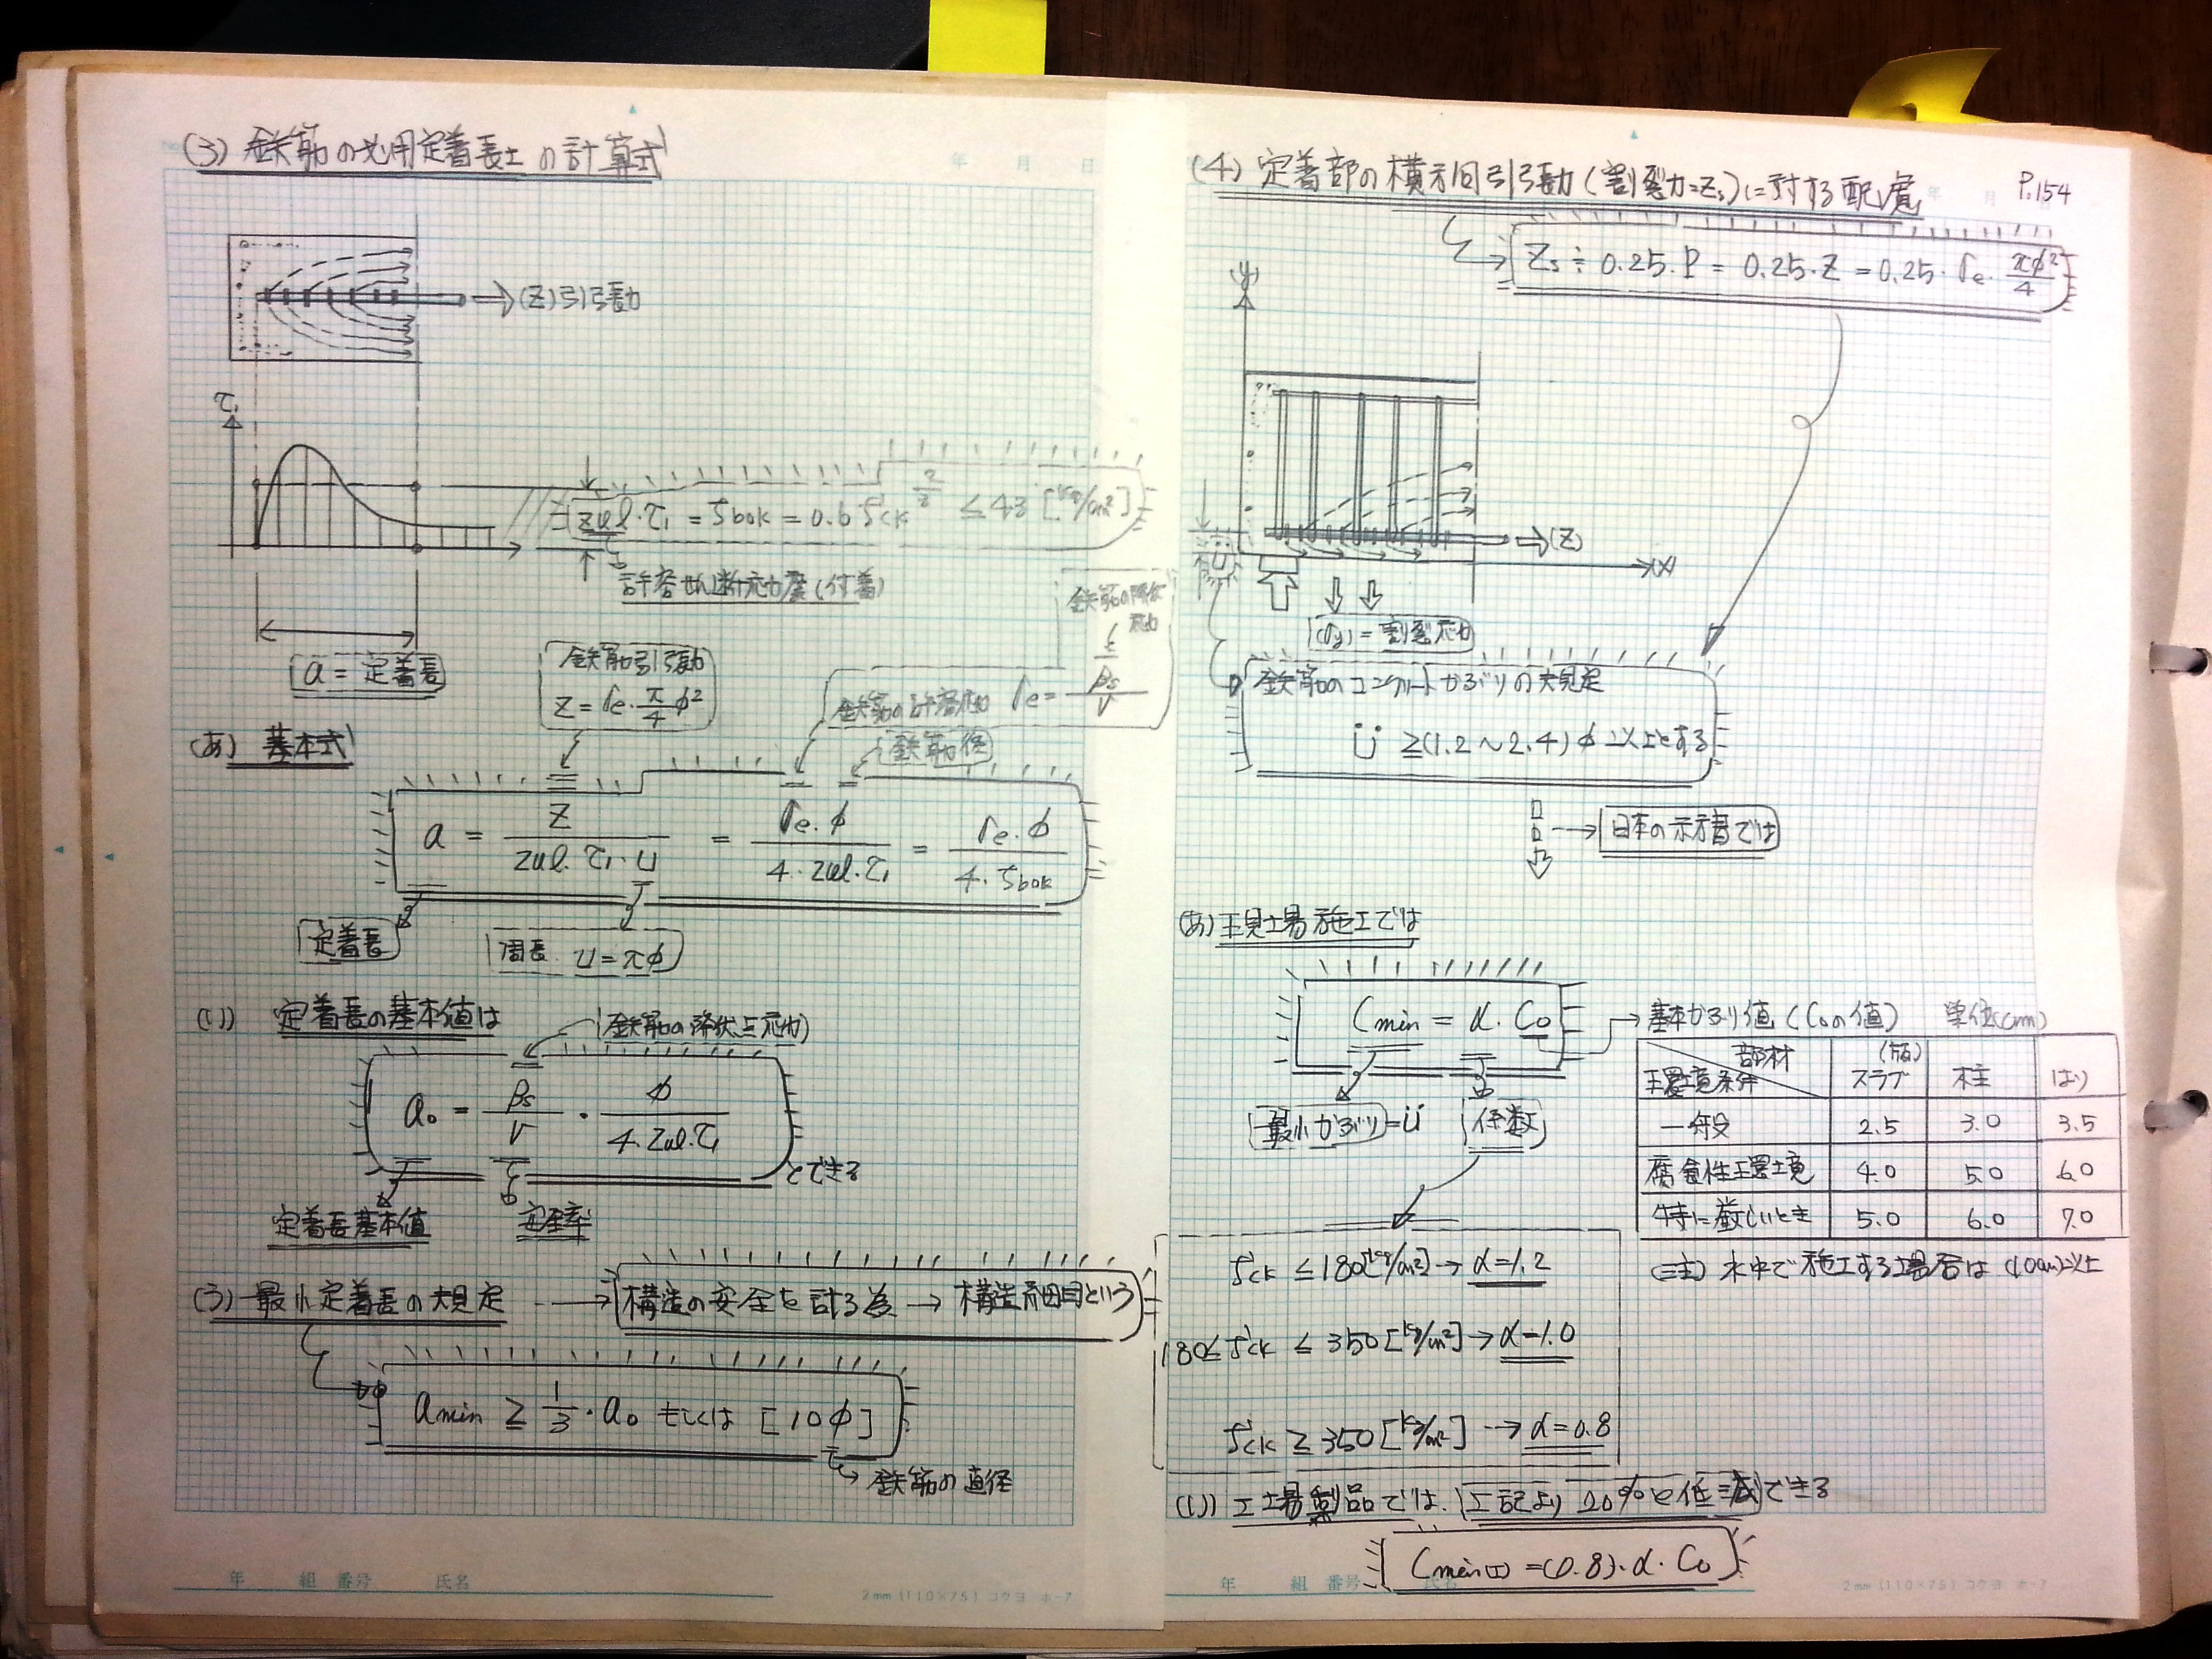 (3) 鉄筋の必用定着長さの計算式
(Z)引張力
τ₁
zul・τ₁ = fbok = 0.6 f'ck^2/3 ≦ 43 [kg/cm²]
許容せん断応力度(付着)
a = 定着長
鉄筋引張力
Z = σe・π/4 φ²
鉄筋の許容応力 σe = βs/ν
鉄筋の降伏応力
鉄筋径
(あ) 基本式
a = Z / zul・τ₁・U = σe・φ / 4・zul・τ₁ = σe・φ / 4・fbok
定着長
周長 U = πφ
(い) 定着長の基本値は
鉄筋の降伏点応力
a₀ = βs/ν ・ φ / 4・zul・τ₁
とできる
定着長基本値
安全率
(う) 最小定着長の規定 → 構造の安全を計る為 → 構造細目という
amin ≧ 1/3・a₀ もしくは [10φ]
鉄筋の直径
年 組 番号 氏名
2mm (110×75) コクヨ ホ-7
(4) 定着部の横方向引張力(割裂力=Zs)に対する配慮
P.154
Zs ≒ 0.25・P = 0.25・Z = 0.25・σe・πφ²/4
(y)
(Z)
(x)
(σy) = 割裂応力
鉄筋のコンクリートかぶりの規定
ü ≧ (1.2 ~ 2.4) φ 以上とする
日本の示方書では
(あ) 現場施工では
Cmin = α・C₀
最小かぶり = ü
係数
基本かぶり値 (C₀の値) 単位(cm)
環境条件 部材 (版)スラブ 柱 はり
一般 2.5 3.0 3.5
腐食性環境 4.0 5.0 6.0
特に厳しいとき 5.0 6.0 7.0
(注) 水中で施工する場合は (10cm)以上
f'ck ≦ 180[kg/cm²] → α=1.2
180≦ f'ck ≦ 350 [kg/cm²] → α=1.0
f'ck ≧ 350 [kg/cm²] → α=0.8
(い) 工場製品では、上記より 20%を低減できる
Cmin(工) = (0.8)・α・C₀
年 組 番号 氏名
2mm (110×75) コクヨ ホ-7